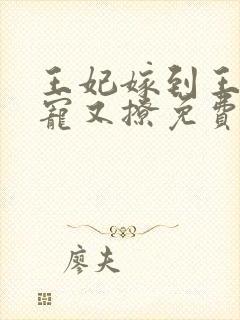 王妃嫁到王
宠又撩免费
廖夫